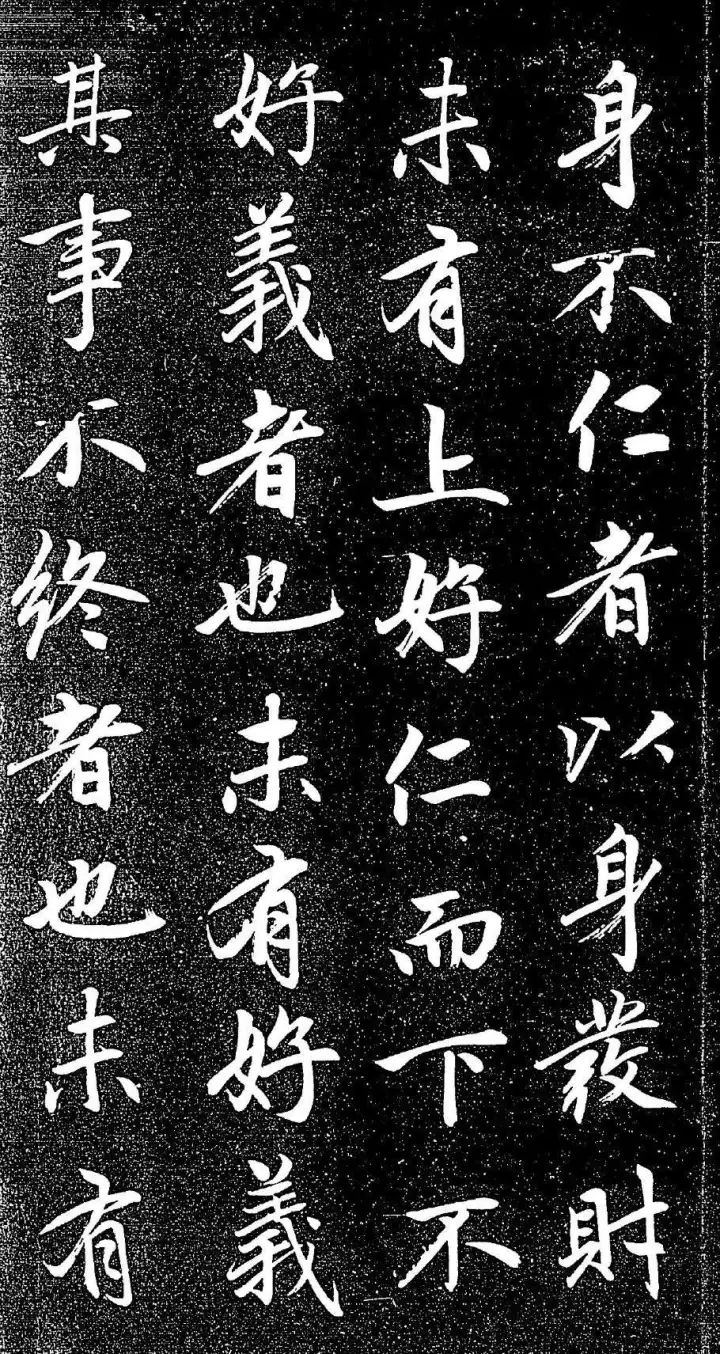 身不仁者以身發財
未有上好仁而下不
好義者也未有好義
其事不終者也未有